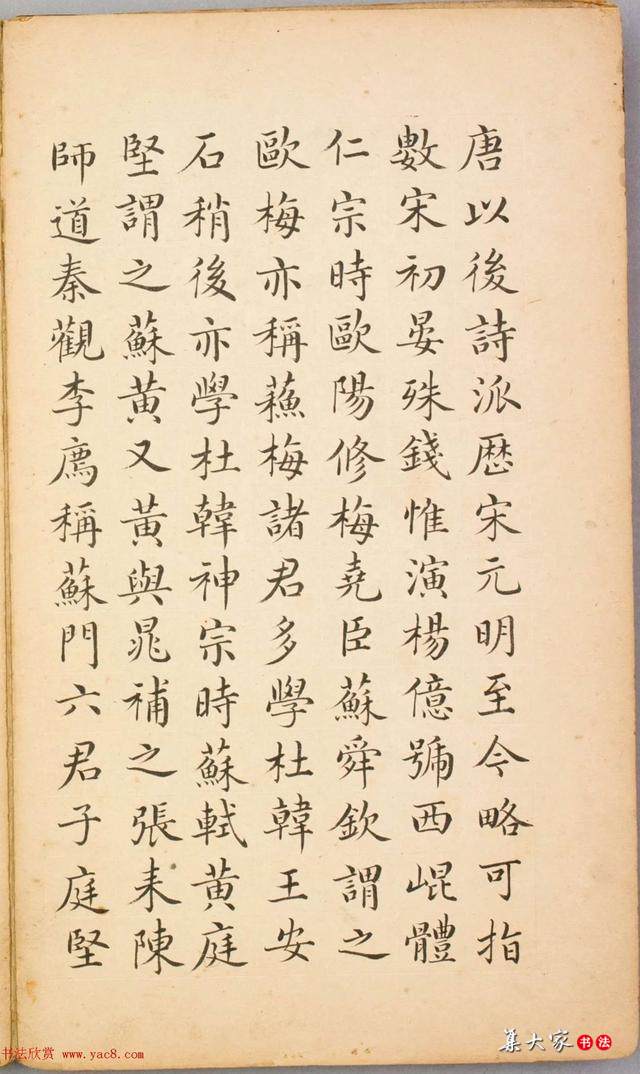 唐以後詩派歷宋元明至今略可指
數宋初晏殊錢惟演楊億號西崐體
仁宗時歐陽修梅堯臣蘇舜欽謂之
歐梅亦稱蘓梅諸君多學杜韓王安
石稍後亦學杜韓神宗時蘇軾黃庭
堅謂之蘇黃又黃與晁補之張耒陳
師道秦觀李廌稱蘇門六君子庭堅
集大家书法
书法欣赏 www.yac8.com